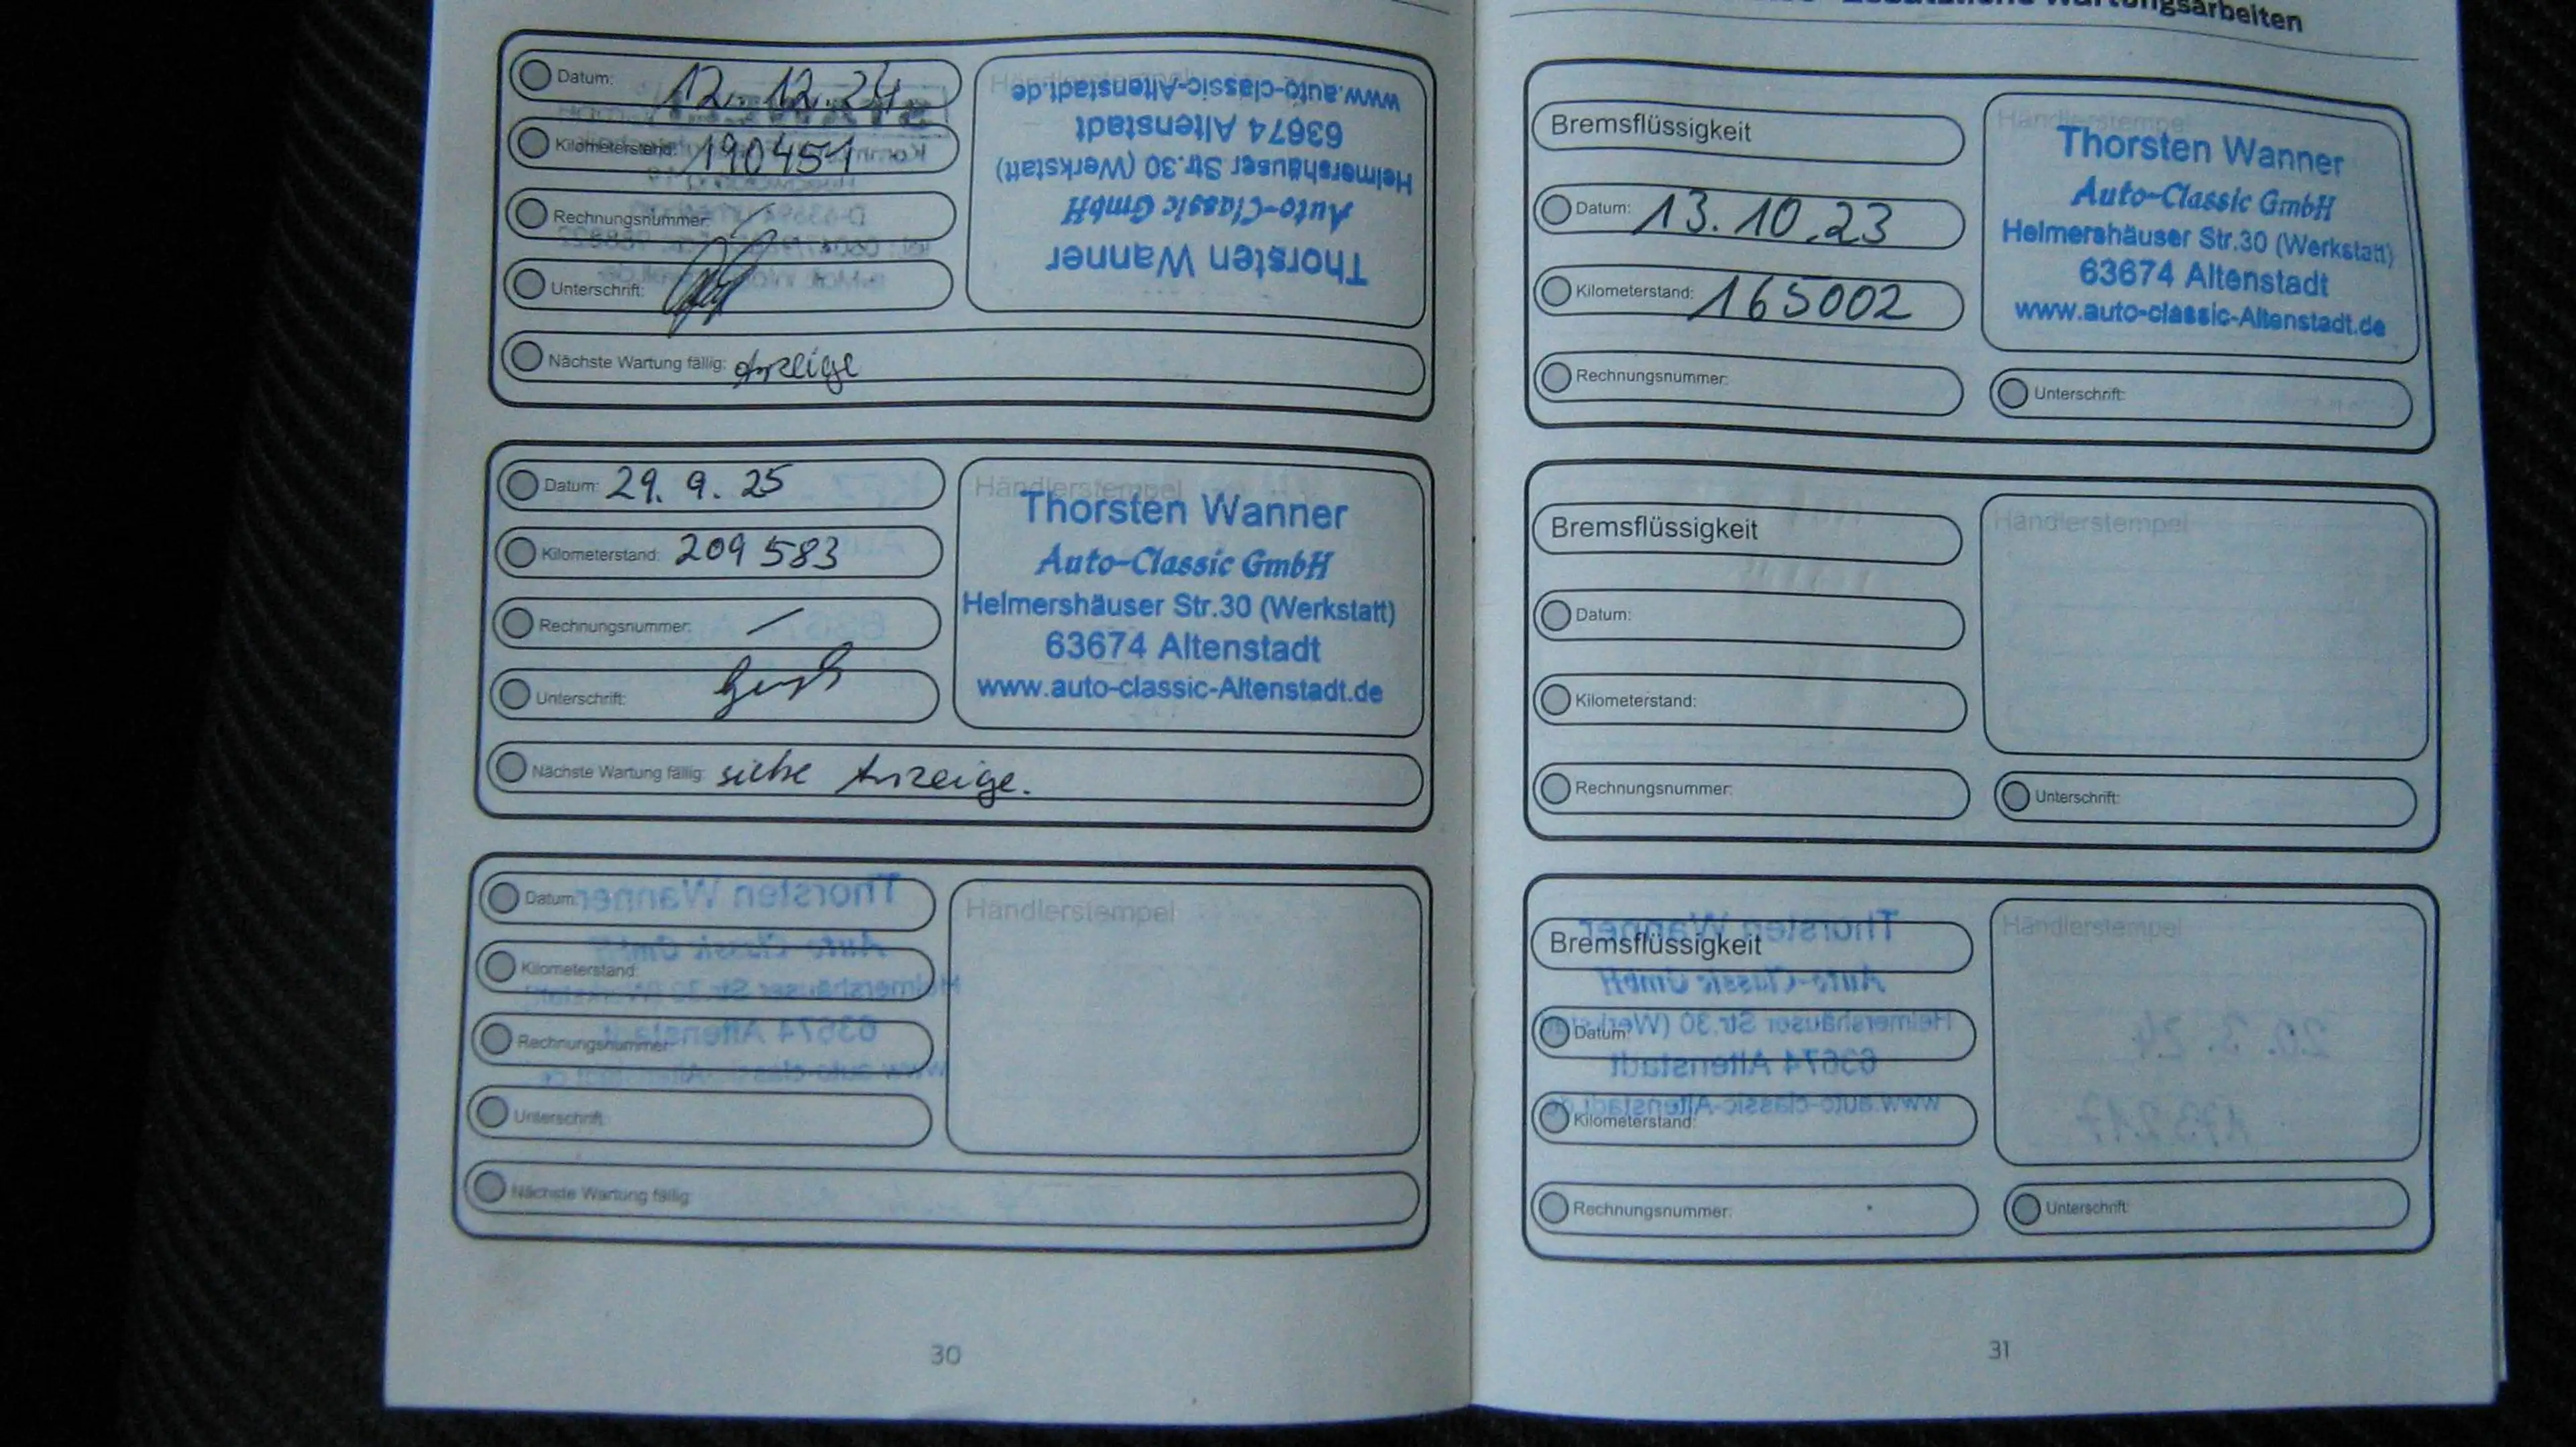 Datum: 12.12.24
Kilometerstand: 190451
Rechnungsnummer:
Unterschrift:
Nächste Wartung fällig: Anzeige
Händlerstempel
Thorsten Wanner
Auto-Classic GmbH
Helmershäuser Str.30 (Werkstatt)
63674 Altenstadt
www.auto-classic-Altenstadt.de
Datum: 29. 9. 25
Kilometerstand: 209 583
Rechnungsnummer:
Unterschrift:
Nächste Wartung fällig: siehe Anzeige.
Händlerstempel
Thorsten Wanner
Auto-Classic GmbH
Helmershäuser Str.30 (Werkstatt)
63674 Altenstadt
www.auto-classic-Altenstadt.de
Datum:
Kilometerstand:
Rechnungsnummer:
Unterschrift:
Nächste Wartung fällig:
Händlerstempel
30
Wartungsarbeiten
Bremsflüssigkeit
Datum: 13.10.23
Kilometerstand: 165002
Rechnungsnummer:
Händlerstempel
Thorsten Wanner
Auto-Classic GmbH
Helmershäuser Str.30 (Werkstatt)
63674 Altenstadt
www.auto-classic-Altenstadt.de
Unterschrift:
Bremsflüssigkeit
Datum:
Kilometerstand:
Rechnungsnummer:
Händlerstempel
Unterschrift:
Bremsflüssigkeit
Datum:
Kilometerstand:
Rechnungsnummer:
Händlerstempel
Unterschrift:
31